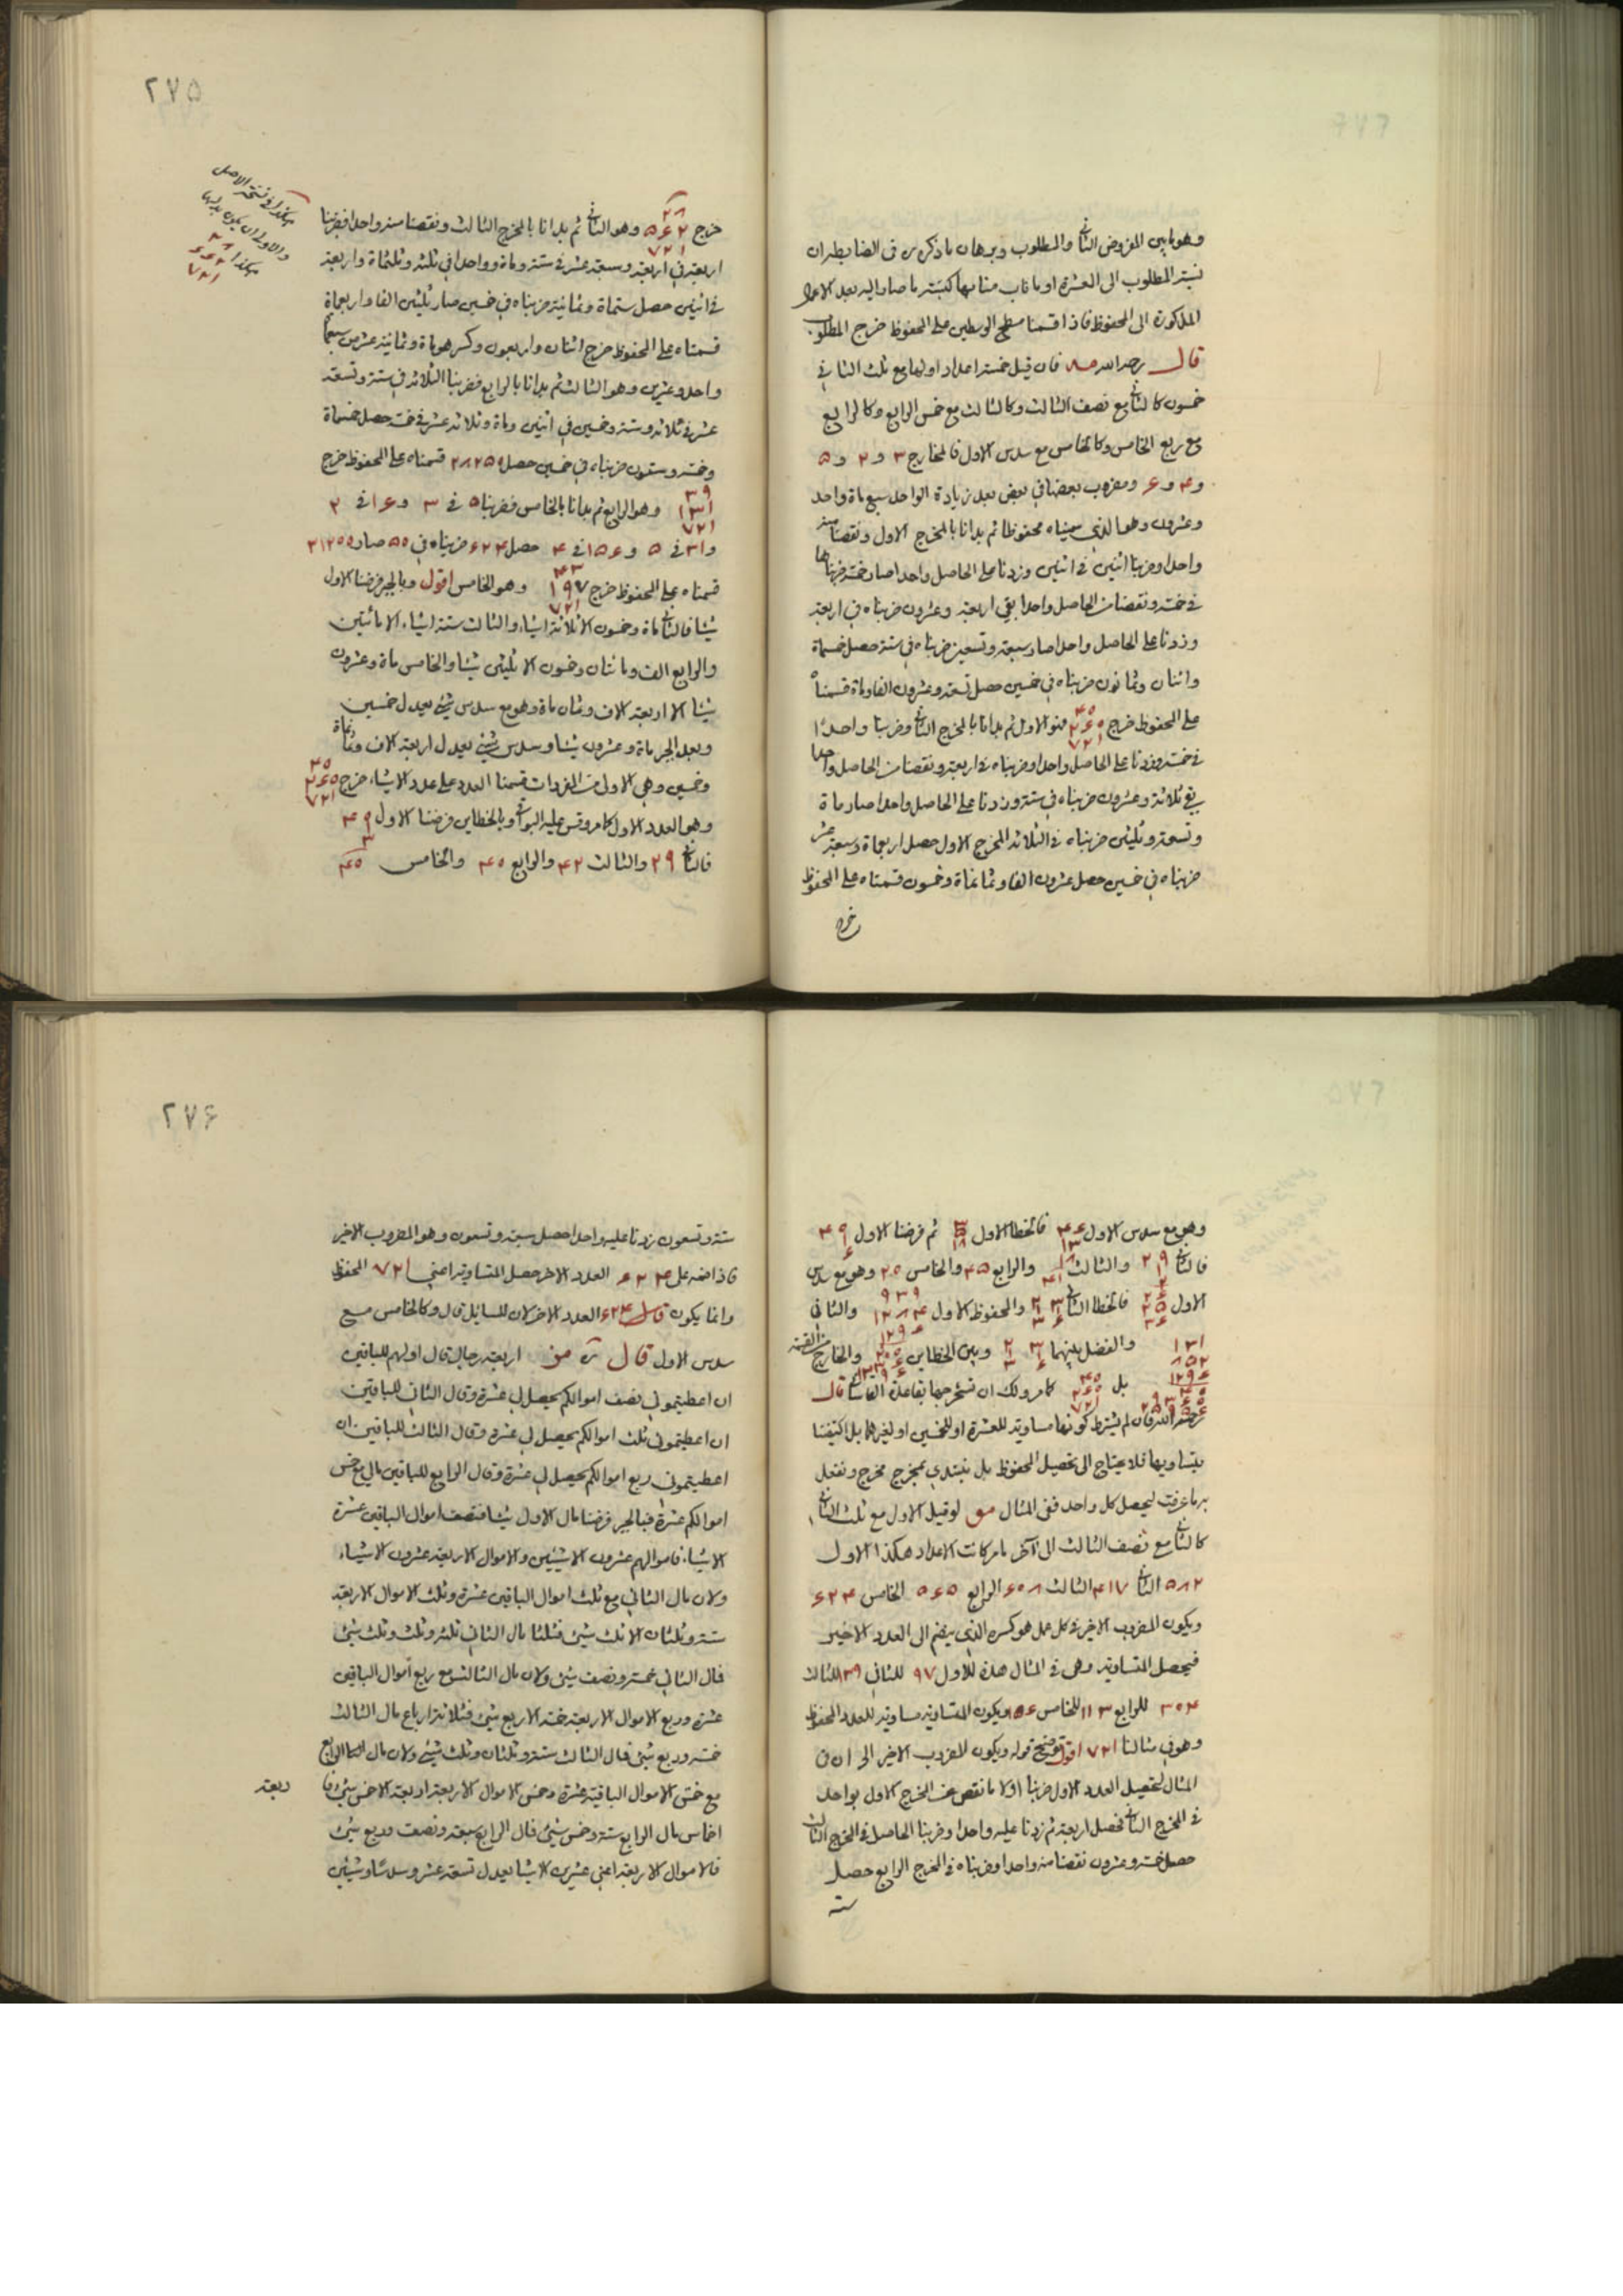 وهو ما بين المفروض الثاني والمطلوب وبرهان ما ذكره من في الضابطه ان
نسبة المطلوب الى العشرة او ما ناب منابها كنسبة ما صار اليه بعد الاعمال
المذكورة الى المحفوظ فاذا قسمنا مسطح الوسطين على المحفوظ خرج المطلوب
قال رحمه الله فان قيل خمسة اعداد اولها مع ثلث الثاني
خمسون كالثاني مع نصف الثالث وكالثالث مع خمس الرابع وكالرابع
مع ربع الخامس وكالخامس مع سدس الاول فالمخارج ۳ و ۲ و ۵
و ۴ و ۶ ومضروب بعضها في بعض بعد زيادة الواحد سبع ماة واحد
وعشرون وهما الذي سميناه محفوظا ثم بدانا بالمخرج الاول ونقصنا منه
واحدا وضربنا اثنين في اثنين وزدنا على الحاصل واحدا صار خمسة ضربناها
في خمسة ونقصنا من الحاصل واحدا بقي اربعة وعشرون ضربناه في اربعة
وزدنا على الحاصل واحدا صار سبعة وتسعين ضربناه في ستة حصل خمسماة
واثنان وثمانون ضربناه في خمسين حصل تسعة وعشرون الفا وماة قسمناه
على المحفوظ خرج ۴۰ ۲۶۰ ۷۲۱ فهو الاول ثم بدانا بالمخرج الثاني وضربنا واحدا
في خمسة وزدنا على الحاصل واحدا وضربناه في اربعة ونقصنا من الحاصل واحدا
بقي ثلاثة وعشرون ضربناه في ستة وزدنا على الحاصل واحدا صار ماة
وتسعة وثلثين ضربناه في الثلاثة المخرج الاول حصل اربعماة وسبعة عشر
ضربناه في خمسين حصل عشرون الفا وثمانماة وخمسون قسمناه على المحفوظ
خرج
۲۷۵
هكذا في نسخة الاصل
والاولى ان يكون بدلها
هكذا ۲۸ ۶۶۲ ۷۲۱
خرج ۲۸ ۵۶۲ ۷۲۱ وهو الثاني ثم بدانا بالمخرج الثالث ونقصنا منه واحدا فضربنا
اربعة في اربعة وسبعة عشر في ستة وماة وواحدا في ثلثة وثلثماة واربعة
في اثنين حصل ستماة وثمانية ضربناه في خمسين صار ثلثين الفا واربعماة
قسمناه على المحفوظ خرج اثنان واربعون وكسر هو ماة وثمانية عشر من سبعماة
واحد وعشرين وهو الثالث ثم بدانا بالرابع فضربنا الثلاثة في ستة وتسعة
عشر في ثلاثة وستة وخمسين في اثنين وماة وثلاثة عشر في خمسة حصل خمسماة
وخمسة وستون ضربناه في خمسين حصل ۲۸۲۵۰ قسمناه على المحفوظ خرج
۳۹ ۱۳۱ ۷۲۱ وهو الرابع ثم بدانا بالخامس فضربنا ۵ في ۳ و ۱۶ في ۲
و ۳۱ في ۵ و ۱۵۶ في ۴ حصل ۶۲۴ ضربناه في ۵۰ صار ۳۱۲۰۰
قسمناه على المحفوظ خرج ۴۳ ۱۹۷ ۷۲۱ وهو الخامس اقول وبالجبر فرضنا الاول
شيئا فالثاني ماة وخمسون الا ثلاثة اشياء والثالث ستة اشياء الا مائتين
والرابع الف ومائتان وخمسون الا ثلثين شيئا والخامس ماة وعشرون
شيئا الا اربعة الاف وثمان ماة وهو مع سدس شيء يعدل خمسين
وبعد الجبر ماة وعشرون شيئا وسدس شيء يعدل اربعة الاف وثمانماة
وخمسين وهي الاولى من المفردات قسمنا العدد على عدد الاشياء خرج ۴۰ ۲۶۰ ۷۲۱
وهو العدد الاول كما مر وقس عليه البواقي وبالخطاين فرضنا الاول
فالثاني ۲۹ والثالث ۴۲ والرابع ۴۰ والخامس ۴۰
وهو مع سدس الاول فالخطا الاول ثم فرضنا الاول
فالثاني والثالث والرابع ۴۵ والخامس ۲۰ وهو مع سدس
الاول فالخطا الثاني والمحفوظ الاول والثاني
والفضل بينهما وبين الخطاين والخارج من القسمة
بل ۴۰ ۲۶۰ ۷۲۱ كما مر ولك ان تستخرجها بقاعدة قال
رحمه الله فان لم يشترط كونها مساوية للعشرة او للخمسين او لغيرهما بل اكتفينا
بتساويها فلا يحتاج الى تحصيل المحفوظ بل نبتدي بمخرج مخرج ونفعل
به ما عرفت ليحصل كل واحد ففي المثال لو قيل الاول مع ثلث الثاني
كالثاني مع نصف الثالث الى آخر ما مر كانت الاعداد هكذا الاول
۵۸۲ الثاني ۴۱۷ الثالث ۶۰۸ الرابع ۵۶۵ الخامس ۶۲۴
ويكون المضروب الاخير في كل عمل هو كسره الذي يضم الى العدد الاخير
فيحصل المتساوية وهي في المثال هذه للاول ۹۷ للثاني ۱۳۹ للثالث
۳۰۴ للرابع ۱۱۳ للخامس ۱۵۶ ويكون المتساوية مساوية للعدد المحفوظ
وهو في مثالنا ۷۲۱ اقول توضيح قوله ويكون المضروب الاخير الخ ان في
المثال لتحصيل العدد الاول ضربنا اولا ما نقص عنه المخرج الاول بواحد
في المخرج الثاني فحصل اربعة ثم زدنا عليه واحدا وضربنا الحاصل في المخرج الثالث
حصل خمسة وعشرون نقصنا منه واحدا وضربناه في المخرج الرابع حصل
ستة
۲۷۶
ستة وتسعون زدنا عليه واحدا حصل سبعة وتسعون وهو المضروب الاخير
فاذا ضم على ۶۲۴ العدد الاخر حصل المتساوية اعني ۷۲۱ المحفوظ
وانما يكون ۶۲۴ العدد الاخر لان السايل قال وكالخامس مع
سدس الاول قال اربعة رجال قال اولهم للباقين
ان اعطيتموني نصف اموالكم يحصل لي عشرة وقال الثاني للباقين
ان اعطيتموني ثلث اموالكم يحصل لي عشرة وقال الثالث للباقين ان
اعطيتموني ربع اموالكم يحصل لي عشرة وقال الرابع للباقين مالي مع خمس
اموالكم عشرة فبالجبر فرضنا مال الاول شيئا فنصف اموال الباقين عشرة
الا شيئا فاموالهم عشرون الا شيئين والاموال الاربعة عشرون الا شيئا
ولان مال الثاني مع ثلث اموال الباقين عشرة وثلث الاموال الاربعة
ستة وثلثان الا ثلث شيء فثلثا مال الثاني ثلثة وثلث وثلث شيء
فمال الثاني خمسة ونصف شيء ولان مال الثالث مع ربع اموال الباقين
عشرة وربع الاموال الاربعة خمسة الا ربع شيء فثلاثة ارباع مال الثالث
خمسة وربع شيء فمال الثالث ستة وثلثان وثلث شيء ولان مال الرابع
مع خمس الاموال الباقية عشرة وخمس الاموال الاربعة اربعة الا خمس شيء فاربعة
اخماس مال الرابع ستة وخمس شيء فمال الرابع سبعة ونصف وربع شيء
فالاموال الاربعة اعني عشرين الا شيئا يعدل تسعة عشر وسدسا وشيئين